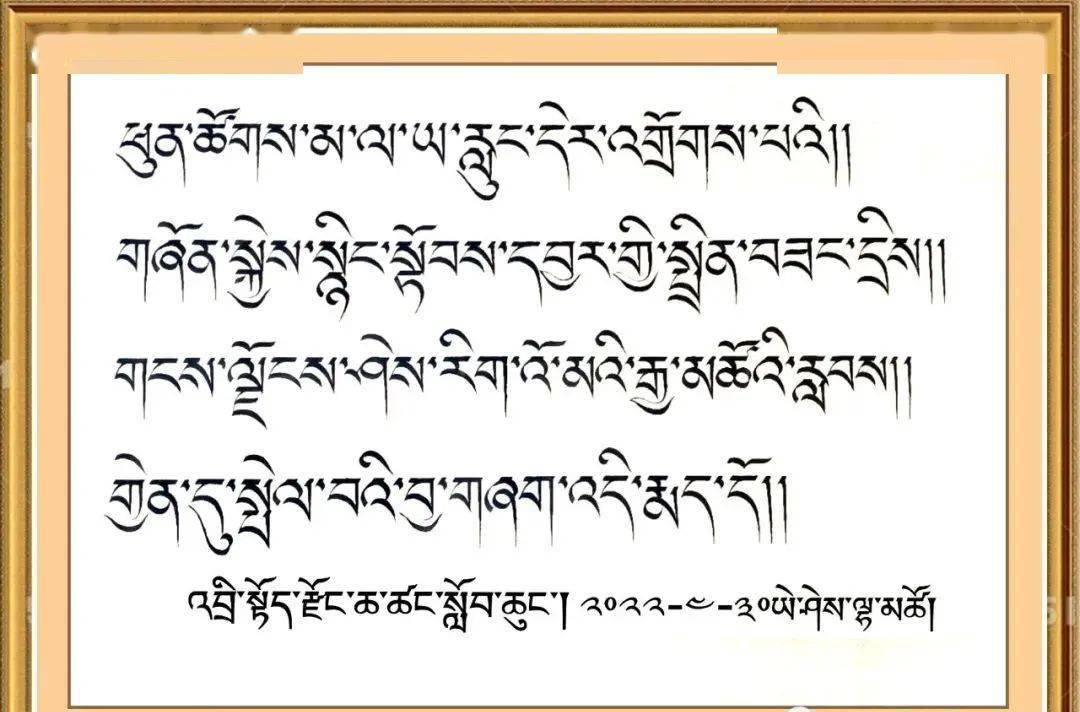 ཕུན་ཚོགས་མ་ལ་ཡ་རླུང་དེར་འགྲོགས་པའི།།
གཞོན་སྐྱེས་སྙིང་སྟོབས་དབྱར་གྱི་སྤྲིན་བཟང་དྲིས།།
གངས་ལྗོངས་ཤེས་རིག་འོ་མའི་རྒྱ་མཚོའི་རླབས།།
གྱེན་དུ་སྤེལ་བའི་བྱ་གཞག་འདི་རྨད་དོ།།
འབྲི་སྟོད་རྫོང་ཆ་ཚང་སློབ་ཆུང་། ༢༠༢༢-༧-༣༠ཡེ་ཤེས་ལྷ་མཚོ།